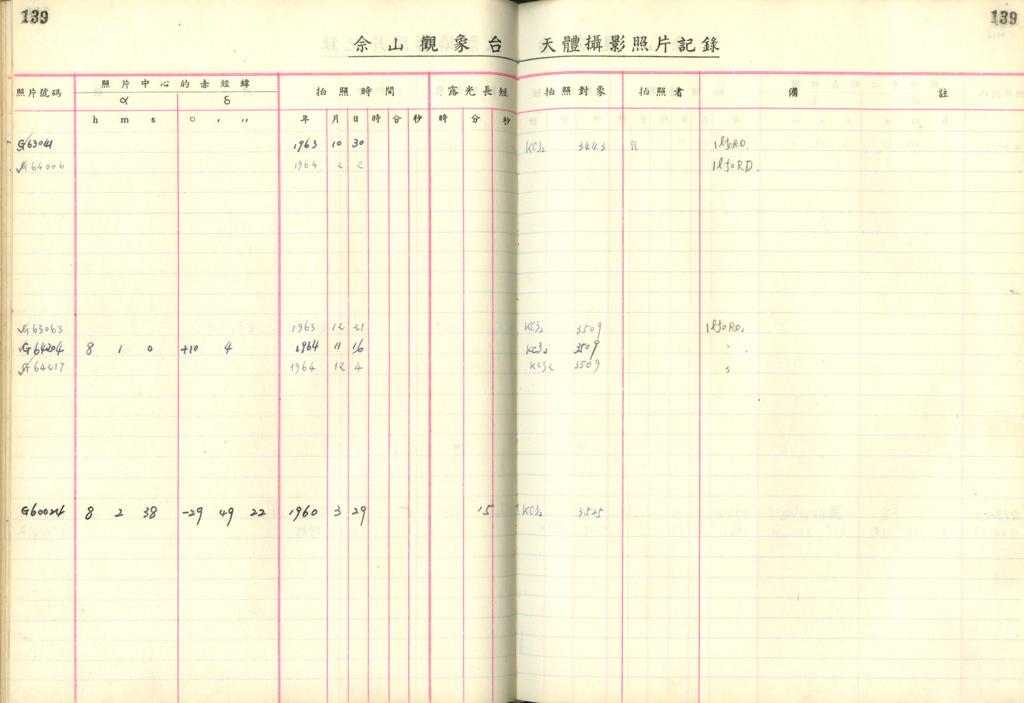 139 139
佘山觀象台 天體攝影照片記錄
照片號碼 照片中心的赤經緯 拍照時間 露光長短 拍照對象 拍照者 備註
α δ
h m s ○ ′ ″ 年 月 日 時 分 秒 時 分 秒
G63041 1963 10 30 3443 IlfoRD
G64006 1964 2 2 IlfoRD.
G63063 1963 12 21 3509 IlfoRD.
G64204 8 1 0 +10 4 1964 11 16 3509 〃
G64217 1964 12 4 3509 〃
G60024 8 2 38 -29 49 22 1960 3 29 15 3525